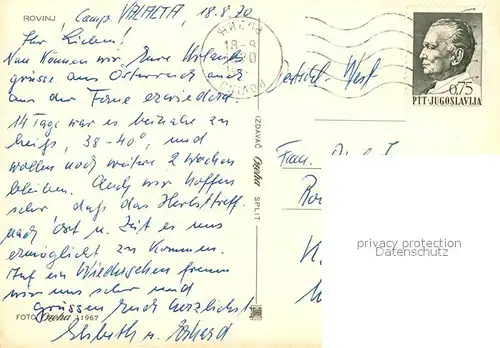 ROVINJ, Camp VALALTA, 18.8.70
Ihr Lieben!
Nun können wir Eure Urlaubs-
grüsse aus Österreich auch
aus der Ferne erwiedern.
14 Tage war es beinahe zu
heiß, 38-40°, und
wollen noch weitere 2 Wochen
bleiben. Auch wir hoffen
sehr, daß das Herbsttreff.
nach Ort u. Zeit es uns
ermöglicht zu kommen.
Auf ein Wiedersehen freuen
wir uns sehr und
grüssen Euch herzlichst
Elsbeth u. Erhard
FOTO Oreha 1967
IZDAVAČ Oreha SPLIT
18-8
West
0,75
PTT-JUGOSLAVIJA
Fam.
privacy protection
Datenschutz